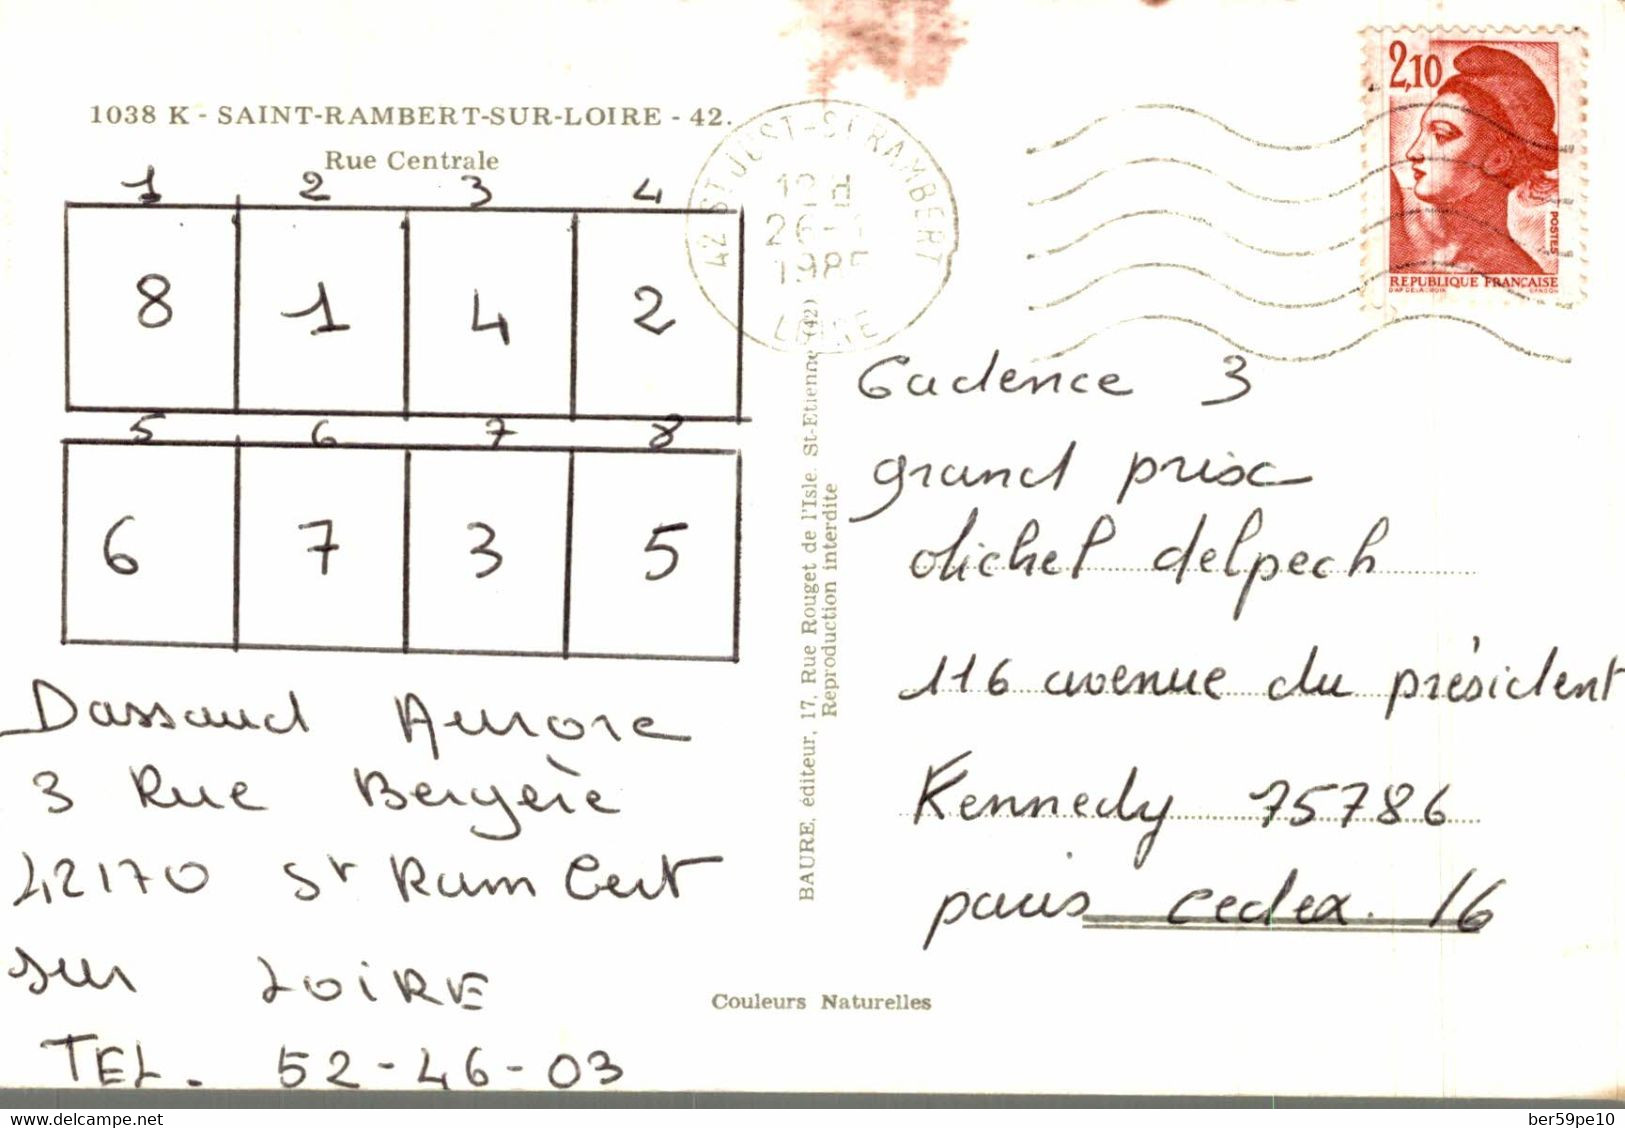 1038 K - SAINT-RAMBERT-SUR-LOIRE - 42.
Rue Centrale
1 2 3 4
8 1 4 2
5 6 7 8
6 7 3 5
Dassaud Aurore
3 Rue Bergère
42170 St Rambert
sur LOIRE
TEL. 52-46-03
BAURE, éditeur, 17, Rue Rouget de l'Isle. St-Etienne (42)
Reproduction interdite
Couleurs Naturelles
42 ST JUST-ST RAMBERT
1985
LOIRE
2,10
POSTES
REPUBLIQUE FRANÇAISE
D'AP DELACROIX GANDON
Cadence 3
grand prix
Michel delpech
116 avenue du président
Kennedy 75786
paris cedex. 16
delcampe.net
ber59pe10